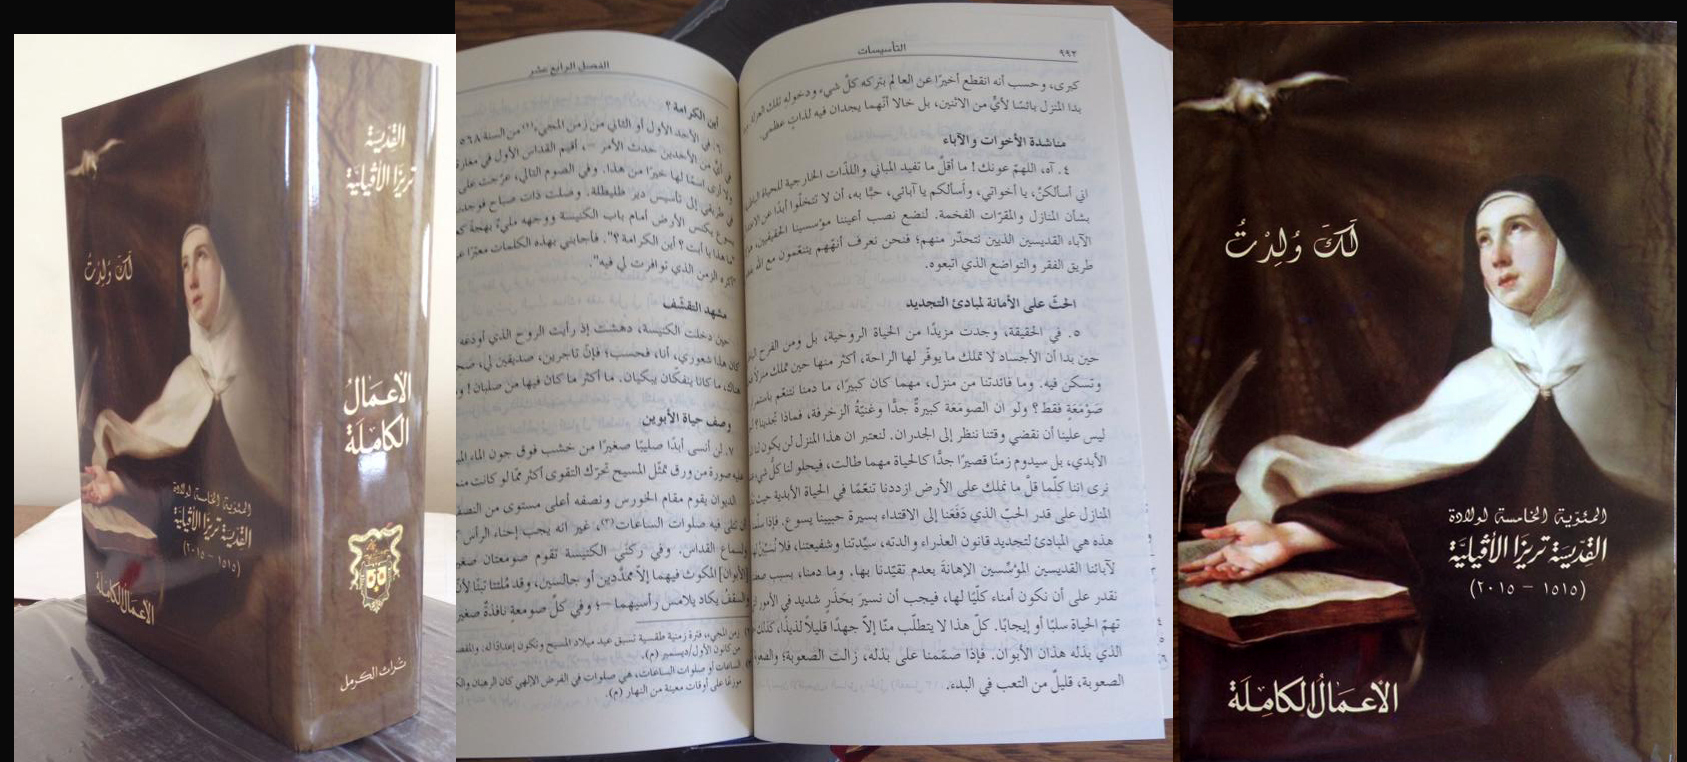 القدّيسة
تريزا الأڤيليّة
لَكَ وُلِدْتُ
الأعمَالُ
الكامِلَة
المئويّة الخامسة لولادة
القدّيسَة تريزَا الأڤيليّة
(١٥١٥ – ٢٠١٥)
الأعمَالُ الكامِلَة
تراث الكرمل
التأسيسات
٩٩٢
كبرى، وحسب أنه انقطع أخيرًا عن العالم بتركه كلّ شيء ودخوله تلك العزلة
بدا المنزل بائسًا لأيٍّ من الاثنين، بل خالا أنّهما يجدان فيه لذاتٍ عظمى.
مناشدة الأخوات والآباء
٤. آه، اللهمّ عونك! ما أقلّ ما تفيد المباني واللذّات الخارجية للحياة
اني أسألكنّ، يا أخواتي، وأسألكم يا آبائي، حبًّا به، أن لا تتخلّوا أبدًا عن
بشأن المنازل والمقرّات الفخمة. لنضع نصب أعيننا مؤسسينا الحقيقيين،
الآباء القديسين الذيين نتحدّر منهم؛ فنحن نعرف أنهّهم يتنعّمون مع الله
طريق الفقر والتواضع الذي اتبعوه.
الحثّ على الأمانة لمبادئ التجديد
٥. في الحقيقة، وجدت مزيدًا من الحياة الروحية، بل ومن الفرح
حين بدا أن الأجساد لا تملك ما يوفّر لها الراحة، أكثر منها حين تملك منزلًا
وتسكن فيه. وما فائدتنا من منزل، مهما كان كبيرًا، ما دمنا لنتنعّم باستمرار
صَوْمَعَةٍ فقط؟ ولو ان الصومَعَة كبيرةٌ جدًّا وغنيّةُ الزخرفة، فماذا تجدينا؟
ليس علينا أن نقضي وقتنا ننظر إلى الجدران. لنعتبر ان هذا المنزل لن يكون لنا
الأبدي، بل سيدوم زمنًا قصيرًا جدًّا كالحياة مهما طالت، فيحلو لنا كلّ شيء
نرى اننا كلّما قلّ ما نملك على الأرض ازددنا تنعّمًا في الحياة الأبدية حيث
المنازل على قدر الحبّ الذي دَفَعَنا إلى الاقتداء بسيرة حبيبنا يسوع. فإذا سلّمنا
هذه هي المبادئ لتجديد قانون العذراء والدته، سيّدتنا وشفيعتنا، فلا
لآبائنا القديسين المؤسّسين الإهانةَ بعدم تقيّدنا بها. وما دمنا، بسبب
نقدر على أن نكون أمناء كلّيًا لها، فيجب أن نسيرَ بحَذَرٍ شديد في الأمور
تهمّ الحياة سلبًا أو إيجابًا. كلّ هذا لا يتطلّب منّا إلاّ جهدًا قليلاً لذيذًا، كذلك
الذي بذله هذان الأبوان. فإذا صمّمنا على بذله، زالت الصعوبة؛
الصعوبة، قليلٌ من التعب في البدء.
الفصل الرابع عشر
أين الكرامة؟
٦. في الأحد الأول أو الثاني من زمن المجيء(٢) من السنة ١٥٦٨
في أيٍّ من الأحدين حدث الأمر –، أقيم القداس الأول في مغارة
ولا أرى اسمًا لها خيرًا من هذا. وفي الصوم التالي، عرّجت على
في طريقي إلى تأسيس دير طليطلة. وصلت ذات صباح فوجدت
يسوع يكنس الأرض أمام باب الكنيسة ووجهه مليءٌ بهجةً
"ما هذا يا أبت؟ أين الكرامة؟". فأجابني بهذه الكلمات معبّرًا
"أكره الزمن الذي توافرت لي فيه".
مشهد التقشّف
حين دخلت الكنيسة، دهشت إذ رأيت الروح الذي أودعه
كان هذا شعوري، أنا، فحسب؛ فإنّ تاجرين، صديقين لي،
هناك، ما كانا ينفكّان يبكيان. ما أكثر ما كان فيها من صلبان!
وصف حياة الأبوين
٧. لن أنسى أبدًا صليبًا صغيرًا من خشب فوق جون الماء
عليه صورة من ورق تمثّل المسيح تحرّك التقوى أكثر ممّا لو كانت
الديوان يقوم مقام الخورس ونصفه أعلى مستوى من
تُتلى فيه صلوات الساعات(٣)، غير انه يجب إحناء الرأس
ولسماع القداس. وفي ركنَي الكنيسة تقوم صومعتان
[الأبوان] المكوث فيهما إلاّ ممدَّدين أو جالسين، وقد ملئتا تبنًا
والسقفُ يكاد يلامس رأسيهما –؛ وفي كلّ صومعةٍ نافذةٌ
(٢) زمن المجيء، فترة زمنية طقسية تسبق عيد ميلاد المسيح وتكون إعدادًا له.
من كانون الأول/ديسمبر (م).
(٣) الساعات أو صلوات الساعات، هي صلوات في الفرض الإلهي كان الرهبان
موزعًا على أوقات معينة من النهار (م).
لَكَ وُلِدْتُ
المئويّة الخامسة لولادة
القدّيسَة تريزَا الأڤيليّة
(١٥١٥ – ٢٠١٥)
الأعمَالُ الكامِلَة